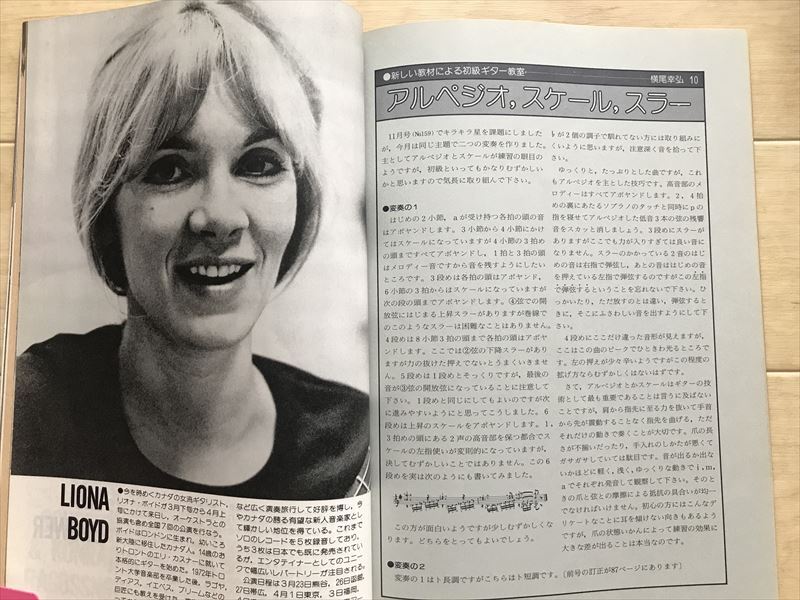 LIONA
BOYD
●今を時めくカナダの女流ギタリスト、
リオナ・ボイドが3月下旬から4月上
旬にかけて来日し、オーケストラとの
協演も含め全国7回の公演を行なう。
ボイドはロンドンに生まれ、幼いころ
新大陸に移住したカナダ人。14歳のお
りトロントのエリ・カスナーに就いて
本格的にギターを始めた。1972年トロ
ント大学音楽部を卒業した後、ラゴヤ、
ディアス、イエペス、ブリームなどの
巨匠にも教えを受けた。
など広く演奏旅行して好評を博し、今
やカナダの誇る有望な新人音楽家とし
て輝かしい地位を得ている。これまで
ソロのレコードを5枚録音しており、
うち3枚は日本でも既に発売されてい
るが、エンタテイナーとしてのユニー
クで幅広いレパートリーが注目される。
公演日程は3月23日熊谷、26日函館、
27日帯広、4月1日東京、3日福岡、
●新しい教材による初級ギター教室
横尾幸弘 10
アルペジオ，スケール，スラー
11月号（No159）でキラキラ星を課題にしました
が，今月は同じ主題で二つの変奏を作りました。
主としてアルペジオとスケールが練習の眼目の
ようですが，初級といってもかなりむずかしい
かと思いますので気長に取り組んで下さい。
●変奏の1
はじめの2小節，aが受け持つ各拍の頭の音
はアポヤンドします。3小節から4小節にかけ
てはスケールになっていますが4小節の3拍め
の頭まですべてアポヤンドし，1拍と3拍の頭
はメロディー音ですから音を残すようにしたい
ところです。3段めは各拍の頭はアポヤンド，
6小節の3拍からはスケールになっていますが
次の段の頭までアポヤンドします。④弦での開
放弦にはじまる上昇スラーがありますが巻線で
のこのようなスラーは困難なことはありません。
4段めは8小節3拍の頭まで各拍の頭はアポヤ
ンドします。ここでは②弦の下降スラーがあり
ますが力の抜けた押えでないとうまくいきませ
ん。5段めは1段めとそっくりですが，最後の
音が③弦の開放弦になっていることに注意して
下さい。1段めと同じにしてもよいのですが次
に進みやすいようにと思ってこうしました。6
段めは上昇のスケールをアポヤンドします。1，
3拍めの頭にある2声の高音部を保つ都合でス
ケールの左指使いが変則的になっていますが，
決してむずかしいことではありません。この6
段めを実は次のようにも書いてみました。
この方が面白いようですが少しむずかしくな
ります。どちらをとってもよいでしょう。
●変奏の2
変奏の1はト長調ですがこちらはト短調です。
♭が2個の調子で馴れてない方には取り組みに
くいように思いますが，注意深く音を拾って下
さい。
ゆっくりと，たっぷりとした曲ですが，これ
もアルペジオを主とした技巧です。高音部のメ
ロディーはすべてアポヤンドします。2，4拍
めの裏にあたるソプラノのタッチと同時にpの
指を寝せてアルペジオした低音3本の弦の残響
音をスカッと消しましょう。3段めにスラーが
ありますがここでも力が入りすぎては良い音に
なりません。スラーのかかっている2音のはじ
めの音は右指で弾弦し，あとの音ははじめの音
を押えている左指で弾弦するのですがこの左指
で弾弦するということを忘れないで下さい。ひ
っかいたり，ただ放すのとは違い，弾弦すると
きに，そこにふさわしい音を出すようにして下
さい。
4段めにここだけ違った音形が見えますが，
ここはこの曲のピークでひときわ光るところで
す。左の押えが少々辛いようですがこの程度の
拡げ方ならむずかしくはないはずです。
さて，アルペジオとかスケールはギターの技
術として最も重要であることは言うに及ばない
ことですが，肩から指先に至る力を抜いて手首
から先が震動することなく指先を曲げる，ただ
それだけの動きで奏くことが大切です。爪の長
さが不揃いだったり，手入れのしかたが悪くて
ガサガサしていては駄目です。音が出るか出な
いかほどに軽く，浅く，ゆっくりな動きでi，m，
aでそれぞれ発音して観察して下さい。そのと
きの爪と弦との摩擦による抵抗の具合いが均一
でなければいけません。初心の方にはこんなデ
リケートなことに耳を傾けない向きもあるよう
ですが，爪の状態いかんによって練習の効果に
大きな差が出ることは本当なのです。
〔前号の訂正が87ページにあります〕